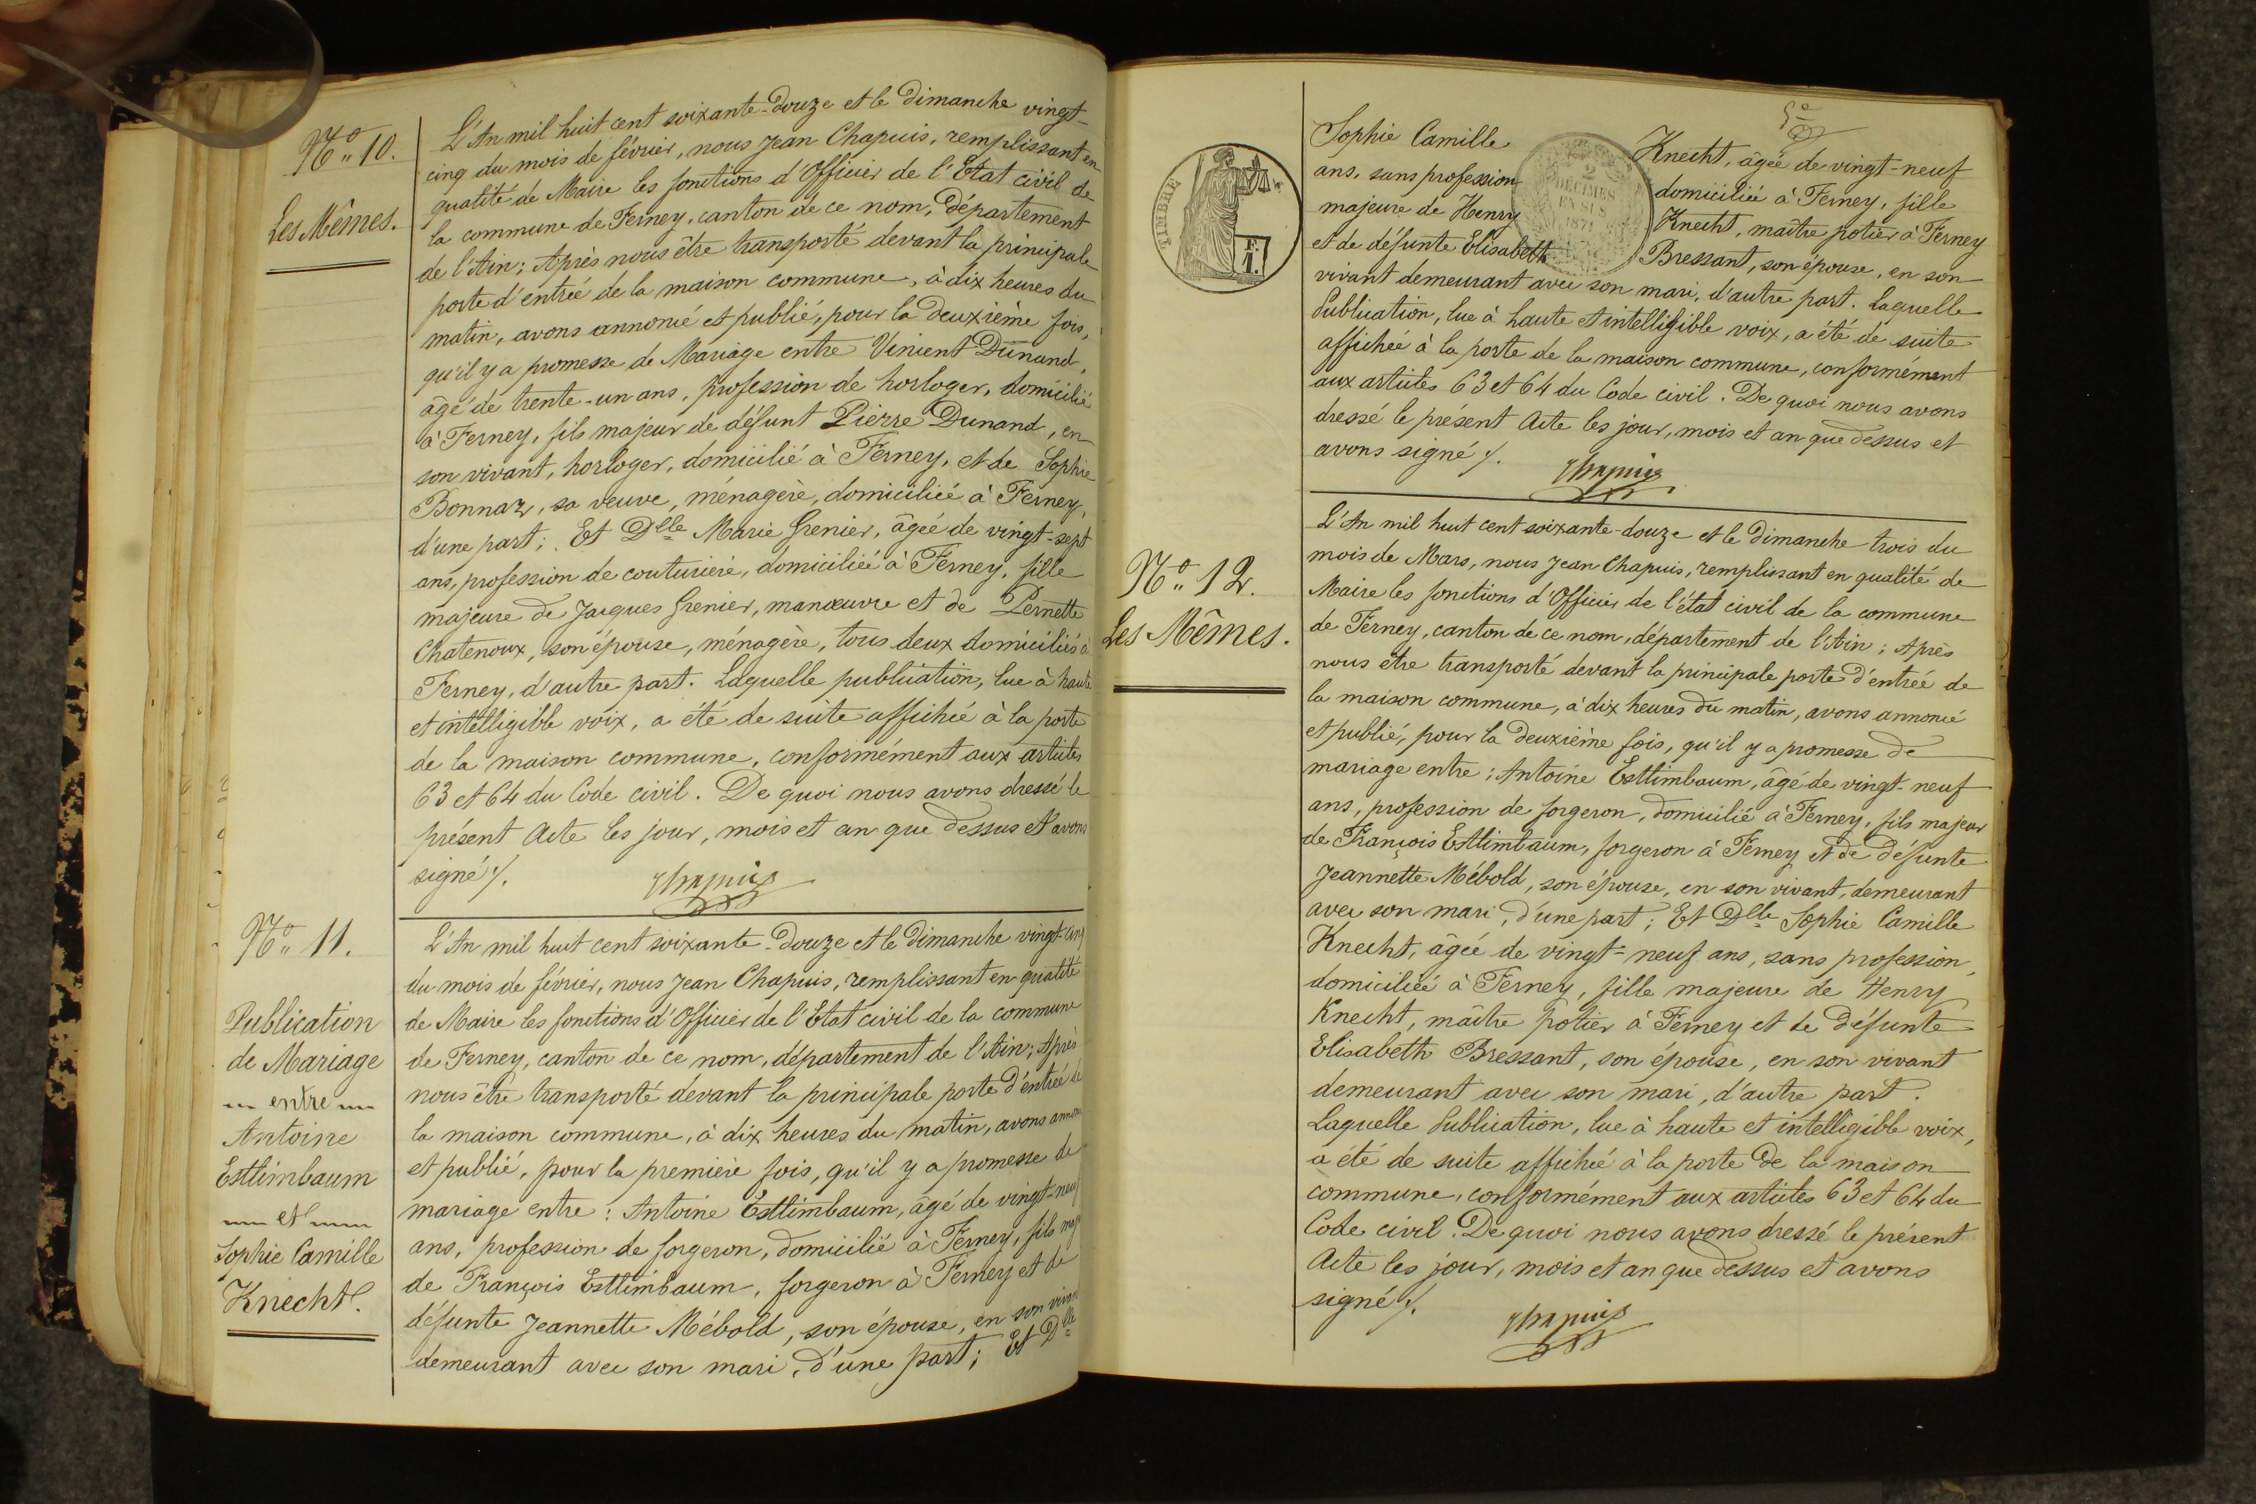 N.o 10.
Les Mêmes.
L'An mil huit cent soixante-douze et le dimanche vingt-
cinq du mois de février, nous Jean Chapuis, remplissant en
qualité de Maire les fonctions d'Officier de l'Etat civil de
la commune de Ferney, canton de ce nom, Département
de l'Ain; Après nous être transporté devant la principale
porte d'entrée de la maison commune, à dix heures du
matin, avons annoncé et publié, pour la deuxième fois,
qu'il y a promesse de Mariage entre Vincent Dunand,
âgé de trente-un ans, profession de horloger, domicilié
à Ferney, fils majeur de défunt Pierre Dunand, en
son vivant, horloger, domicilié à Ferney, et de Sophie
Bonnaz, sa veuve, ménagère, domiciliée à Ferney,
d'une part; Et Dlle Marie Grenier, âgée de vingt-sept
ans, profession de couturière, domiciliée à Ferney, fille
majeure de Jacques Grenier, manœuvre et de Pernette
Chatenoux, son épouse, ménagère, tous deux domiciliés à
Ferney, d'autre part. Laquelle publication, lue à haute
et intelligible voix, a été de suite affichée à la porte
de la maison commune, conformément aux articles
63 et 64 du Code civil. De quoi nous avons dressé le
présent Acte les jour, mois et an que dessus et avons
signé /.
Chapuis
N.o 11.
Publication
de Mariage
entre
Antoine
Esttimbaum
et
Sophie Camille
Knecht.
L'An mil huit cent soixante-douze et le Dimanche vingt-cinq
du mois de février, nous Jean Chapuis, remplissant en qualité
de Maire les fonctions d'Officier de l'Etat civil de la commune
de Ferney, canton de ce nom, département de l'Ain; Après
nous être transporté devant la principale porte d'entrée de
la maison commune, à dix heures du matin, avons
et publié, pour la première fois, qu'il y a promesse de
mariage entre: Antoine Esttimbaum, âgé de vingt-neuf
ans, profession de forgeron, domicilié à Ferney, fils
de François Esttimbaum, forgeron à Ferney et de
défunte Jeannette Mébold, son épouse, en son vivant
demeurant avec son mari, d'une part; Et Dlle
TIMBRE
2
DÉCIMES
EN SUS
1871
Sophie Camille Knecht, âgée de vingt-neuf
ans, sans profession domiciliée à Ferney, fille
majeure de Henry Knecht, maître potier à Ferney
et de défunte Elisabeth Bressant, son épouse, en son
vivant demeurant avec son mari, d'autre part. Laquelle
Publication, lue à haute et intelligible voix, a été de suite
affichée à la porte de la maison commune, conformément
aux articles 63 et 64 du Code civil. De quoi nous avons
dressé le présent Acte les jour, mois et an que dessus et
avons signé /.
Chapuis
N.o 12.
Les Mêmes.
L'An mil huit cent soixante-douze et le dimanche trois du
mois de Mars, nous Jean Chapuis, remplissant en qualité de
Maire les fonctions d'Officier de l'état civil de la commune
de Ferney, canton de ce nom, département de l'Ain; Après
nous être transporté devant la principale porte d'entrée de
la maison commune, à dix heures du matin, avons annoncé
et publié, pour la deuxième fois, qu'il y a promesse de
mariage entre: Antoine Esttimbaum, âgé de vingt-neuf
ans, profession de forgeron, domicilié à Ferney, fils majeur
de François Esttimbaum, forgeron à Ferney et de défunte
Jeannette Mébold, son épouse, en son vivant, demeurant
avec son mari, d'une part; Et Dlle Sophie Camille
Knecht, âgée de vingt-neuf ans, sans profession,
domiciliée à Ferney, fille majeure de Henry
Knecht, maître potier à Ferney et de défunte
Elisabeth Bressant, son épouse, en son vivant
demeurant avec son mari, d'autre part.
Laquelle Publication, lue à haute et intelligible voix,
a été de suite affichée à la porte de la maison
commune, conformément aux articles 63 et 64 du
Code civil. De quoi nous avons dressé le présent
Acte les jour, mois et an que dessus et avons
signé /.
Chapuis